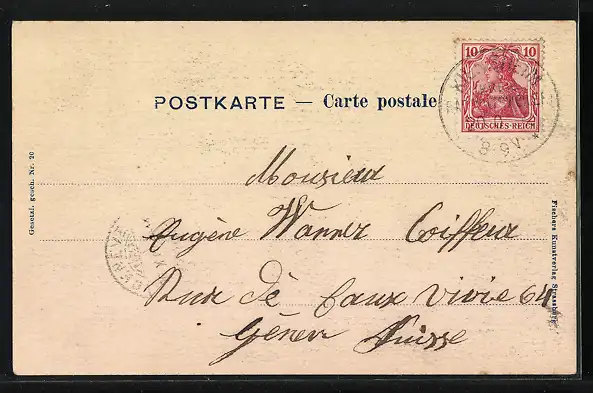 10 10
DEUTSCHES REICH
8-9V
POSTKARTE — Carte postale
Monsieur
Eugène Wanner Coiffeur
Rue dè Eaux Vivie 64
Génev Suisse
Gesetzl. gesch. Nr. 20
Fischers Kunstverlag Strassburg